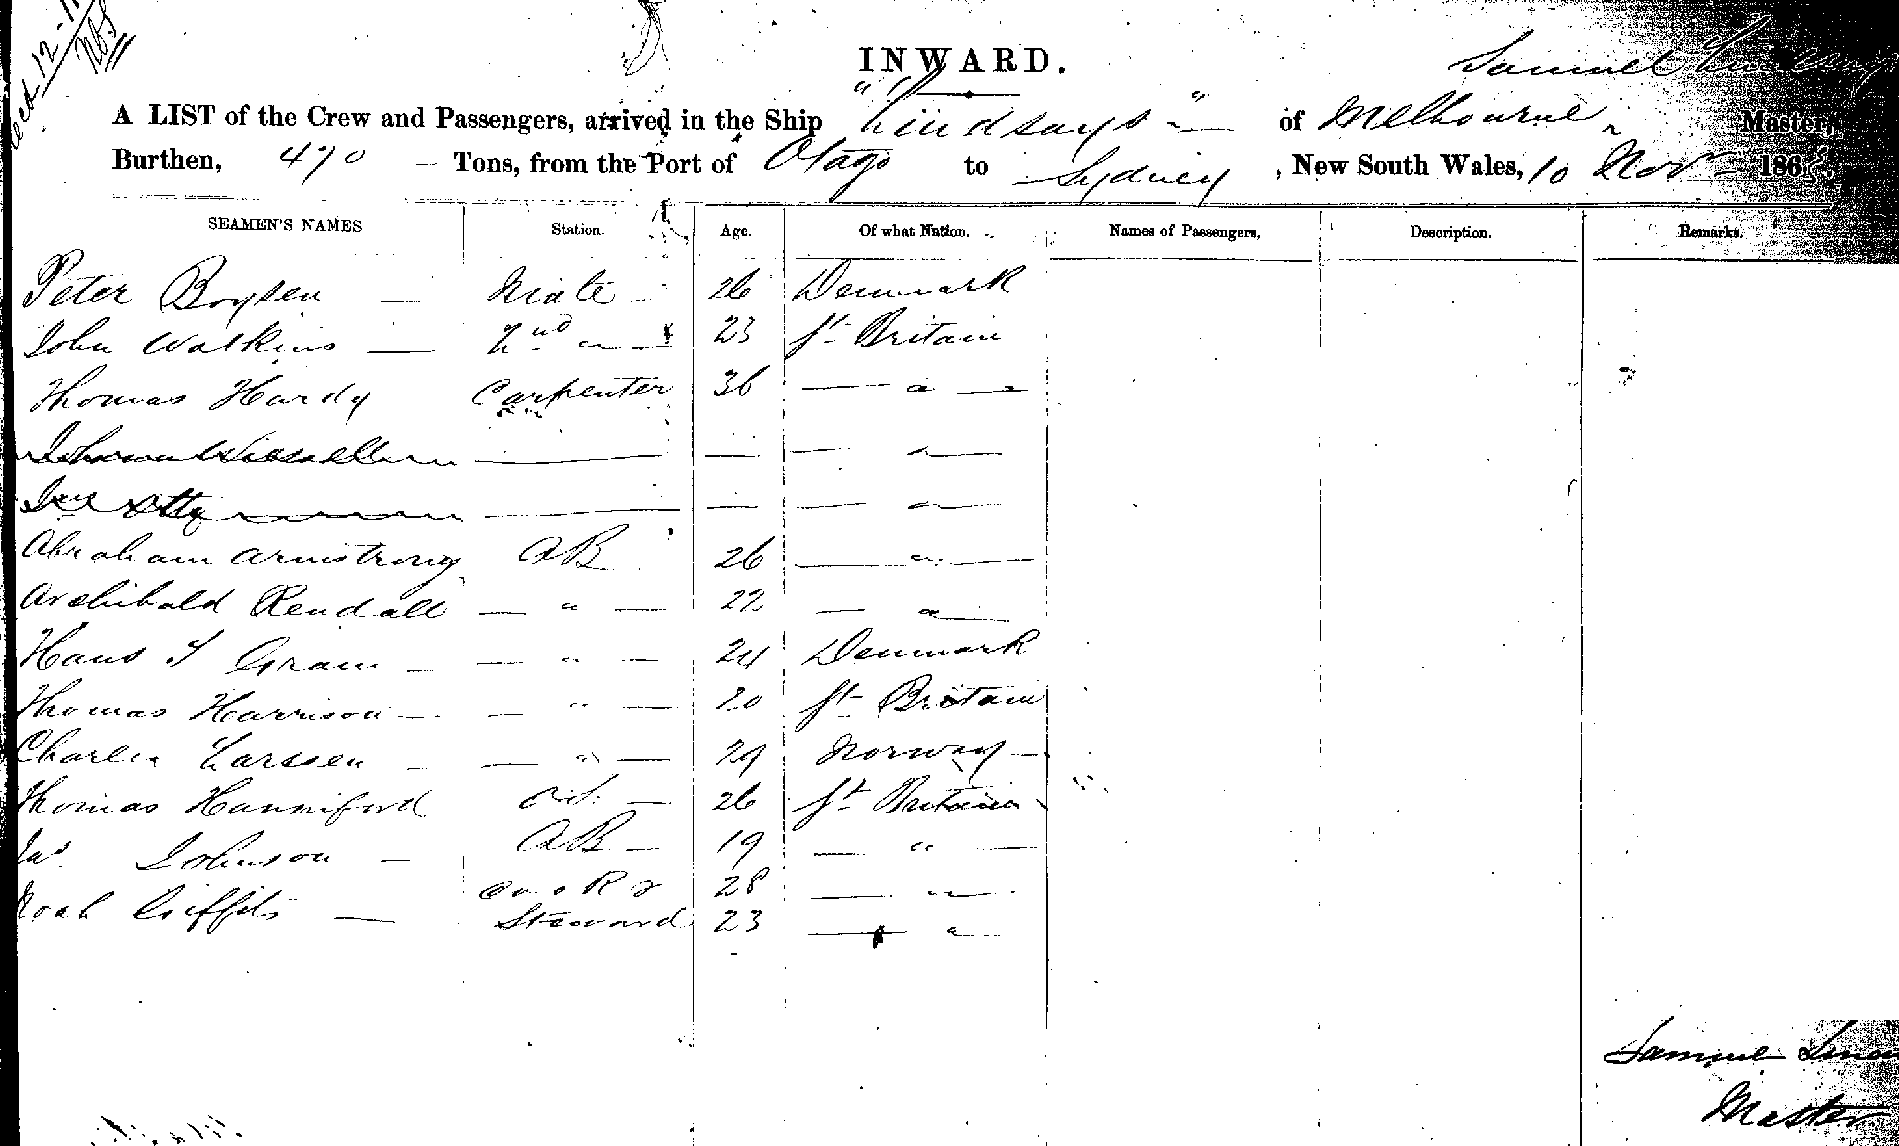 INWARD.
Samuel
A LIST of the Crew and Passengers, arrived in the Ship "Lindsays" of Melbourne Master,
Burthen, 470 Tons, from the Port of Otago to Sydney, New South Wales, 10 Nov 186
SEAMEN'S NAMES Station. Age. Of what Nation. Names of Passengers, Description. Remarks.
Peter Boysen — Mate — 26 Denmark
John Watkins — 2nd " — 23 Gt Britain
Thomas Hardy Carpenter 36 — " —
— — — " —
— — — " —
Abraham Armstrong AB 26 — " —
Archibald Rendall — " — 22 — " —
Hans J Gram — — " — 24 Denmark
Thomas Harrison — — " — 20 Gt Britain
Charles Larssen — — " — 29 Norway —
Thomas Hanniford — 26 Gt Britain
Jas Johnson — AB — 19 — " —
Cook & 28 — " —
Noah Griffits — Steward 23 — " —
Samuel
Master